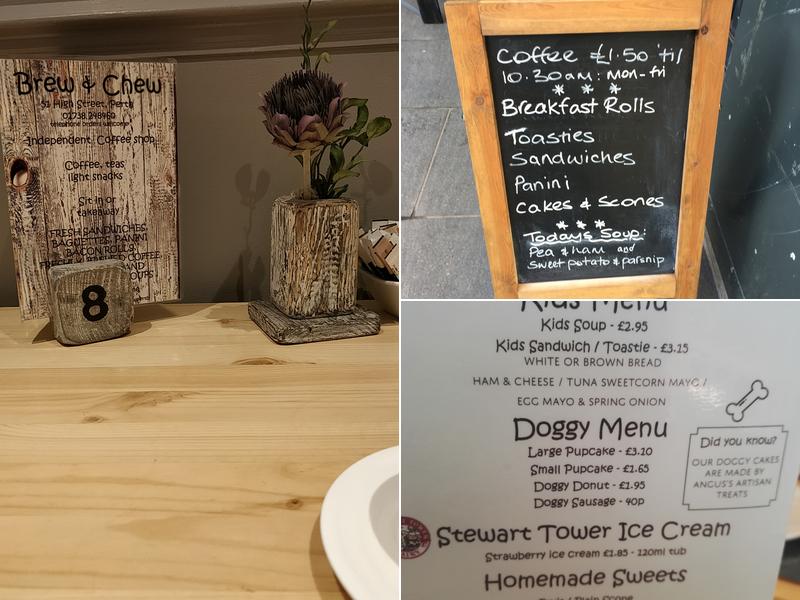 Brew & Chew
51 High Street, Perth
01738 248960
telephone orders welcome
Independent Coffee shop
Coffee, teas
light snacks
Sit in or
takeaway
FRESH SANDWICHES,
BAGUETTES, PANINI
BACON ROLLS,
COFFEE
8
Coffee £1.50 'til
10.30am: Mon-fri
* * *
Breakfast Rolls
Toasties
Sandwiches
Panini
Cakes & Scones
* * *
Today's Soup:
Pea & ham and
Sweet potato & parsnip
Kids Menu
Kids Soup - £2.95
Kids Sandwich / Toastie - £3.15
WHITE OR BROWN BREAD
HAM & CHEESE / TUNA SWEETCORN MAYO /
EGG MAYO & SPRING ONION
Doggy Menu
Large Pupcake - £3.10
Small Pupcake - £1.65
Doggy Donut - £1.95
Doggy Sausage - 40p
Did you know?
OUR DOGGY CAKES
ARE MADE BY
ANGUS'S ARTISAN
TREATS
Stewart Tower Ice Cream
Strawberry ice cream £1.85 - 120ml tub
Homemade Sweets